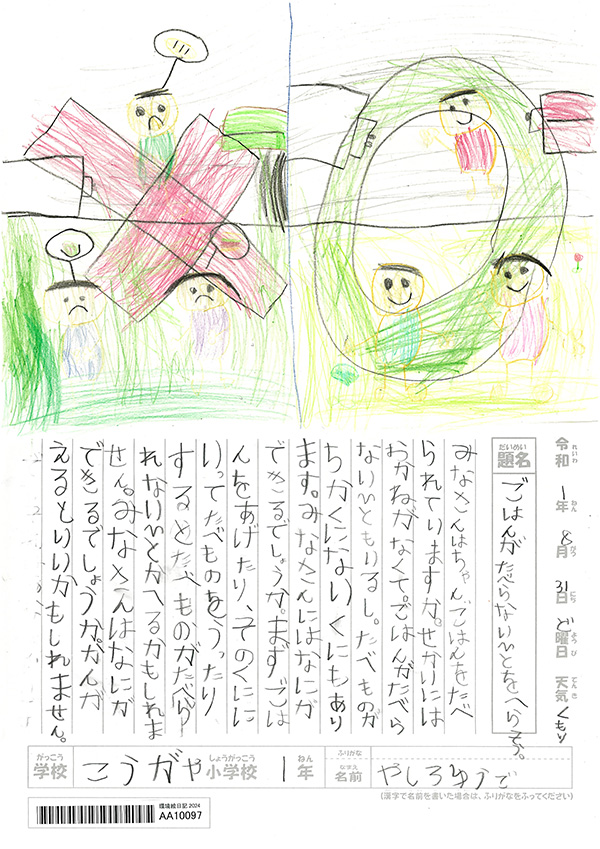 令和 1年 8月 31日 ど曜日 天気 くもり
れいわ ねん がつ にち ようび てんき
だいめい
題名 ごはんがたべらないひとをへらそう。
みなさんはちゃんごはんをたべ
られていますか。せかいには
おかねがなくて。ごはんがたべら
ないひともいるし。たべものが
ちかくにないくにもあり
ます。みなさんにはなにが
できるでしょうか。まずごは
んをあげたり、そのくにに
いってたべものをうったり
するとたべものがたべら
れないひとがへるかもしれま
せん。みなさんはなにが
できるでしょうか。かんが
えるといいかもしれません。
がっこう しょうがっこう ねん ふりがな
学校 こうがや小学校 1年 名前 やしろ
なまえ
(漢字で名前を書いた場合は、ふりがなをふってください)
環境絵日記2024
AA10097